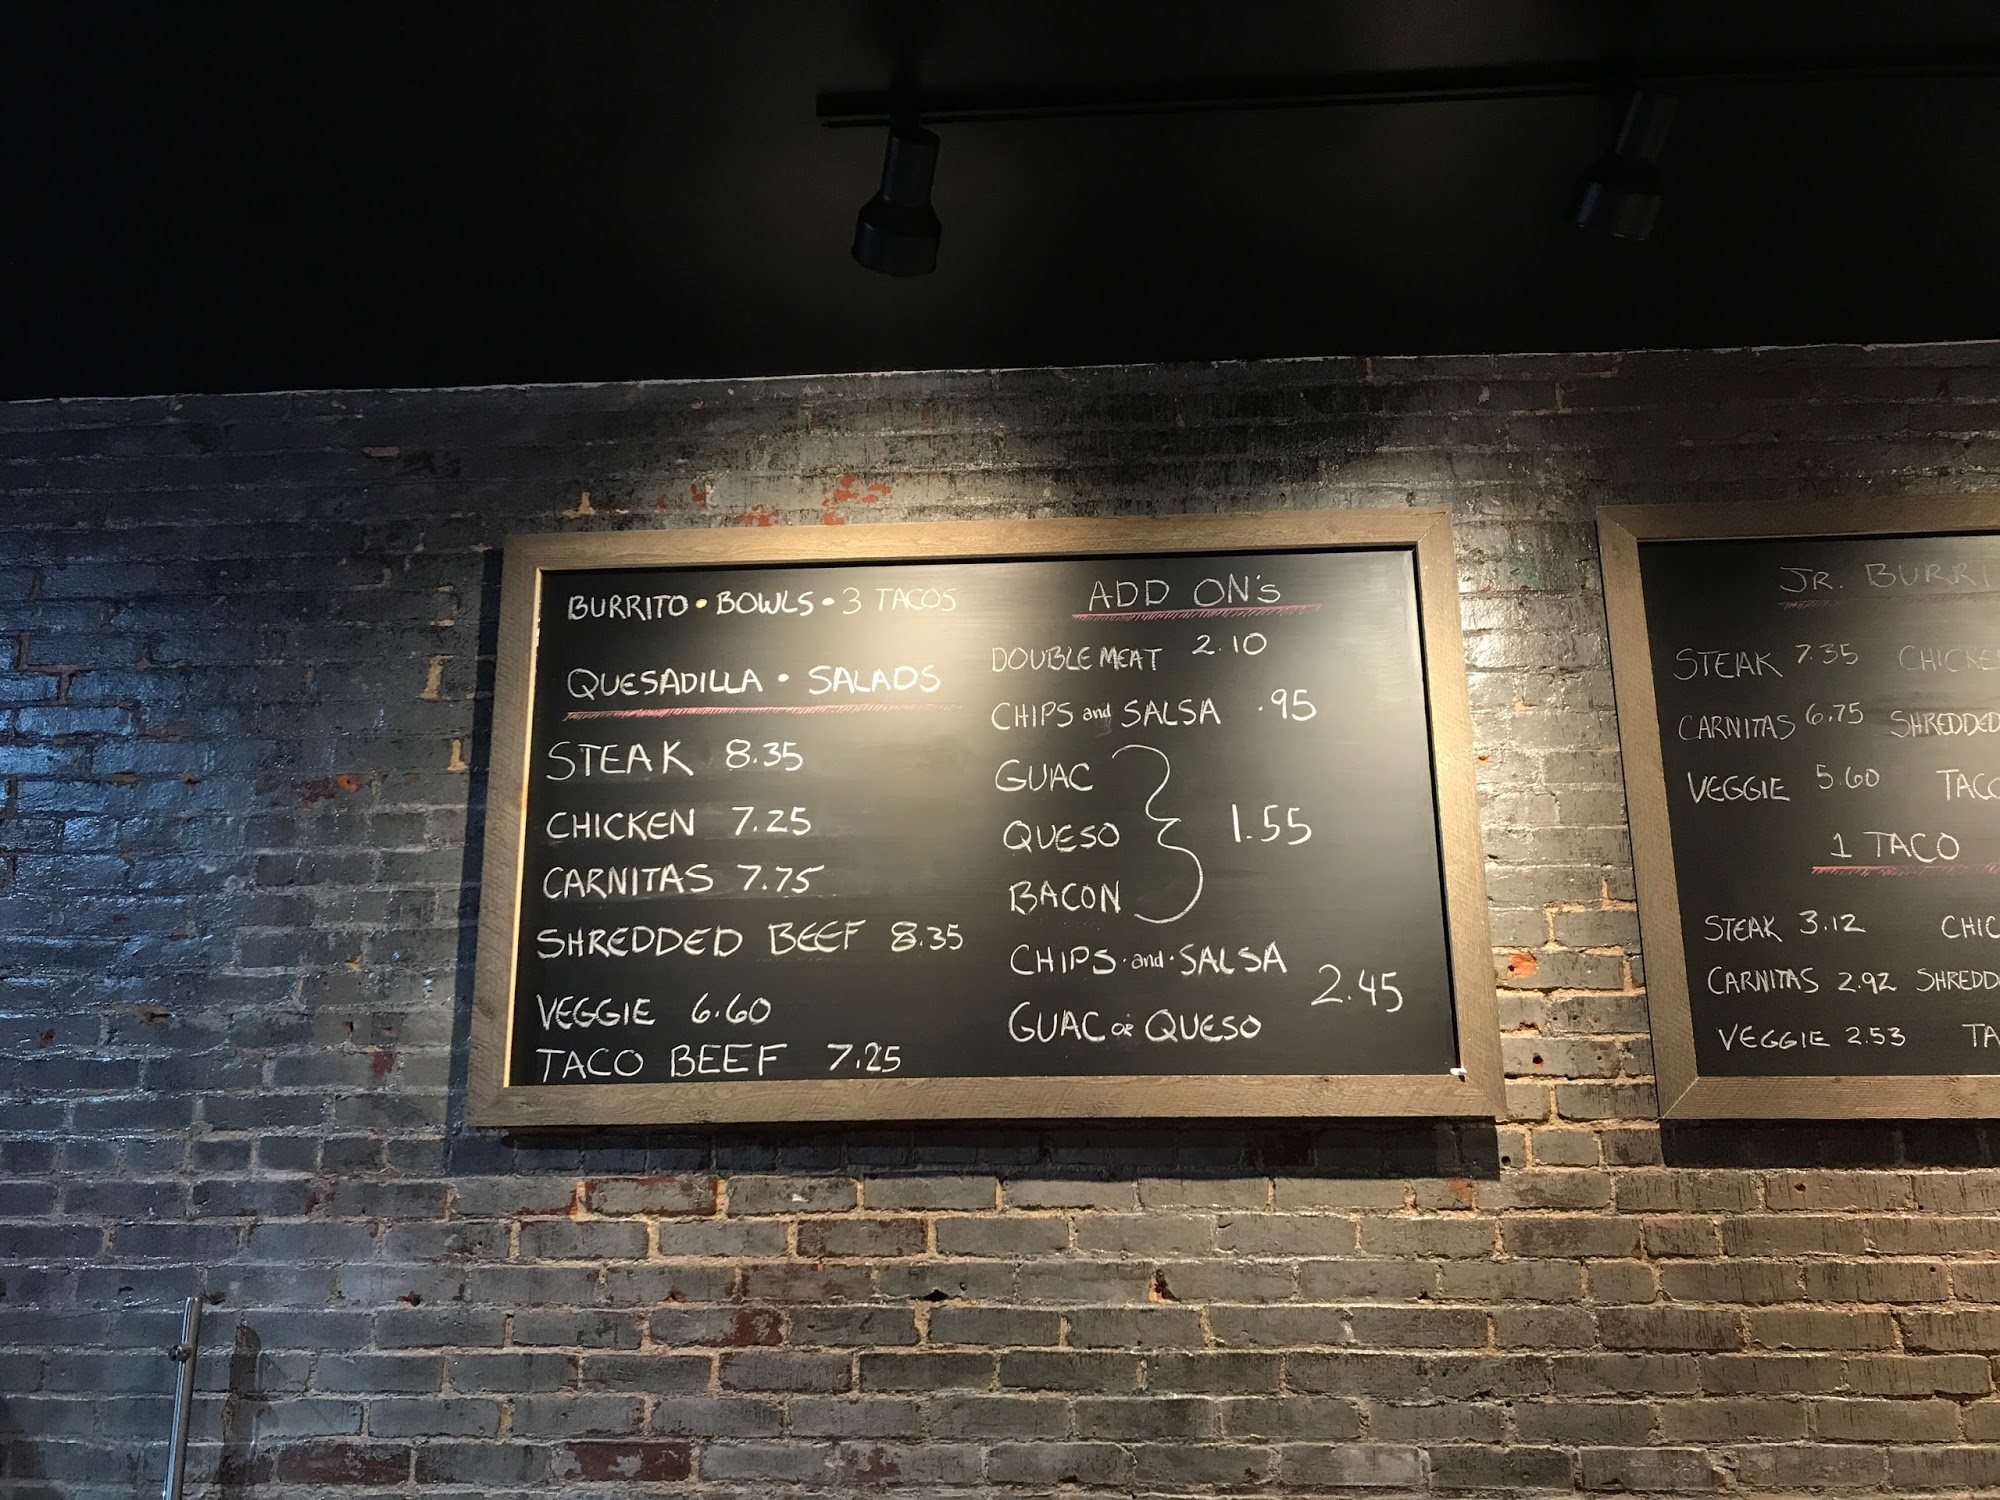 BURRITO • BOWLS • 3 TACOS
QUESADILLA • SALADS
STEAK 8.35
CHICKEN 7.25
CARNITAS 7.75
SHREDDED BEEF 8.35
VEGGIE 6.60
TACO BEEF 7.25
ADD ON's
DOUBLE MEAT 2.10
CHIPS and SALSA .95
GUAC
QUESO
BACON
1.55
CHIPS • and • SALSA
GUAC or QUESO
2.45
JR. BURRI
STEAK 7.35 CHICKE
CARNITAS 6.75 SHREDDED
VEGGIE 5.60 TACO
1 TACO
STEAK 3.12 CHIC
CARNITAS 2.92 SHREDD
VEGGIE 2.53 TA